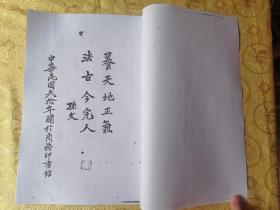 養天地正氣
法古今完人
孫文
中華民國武拾年關於商務印書館